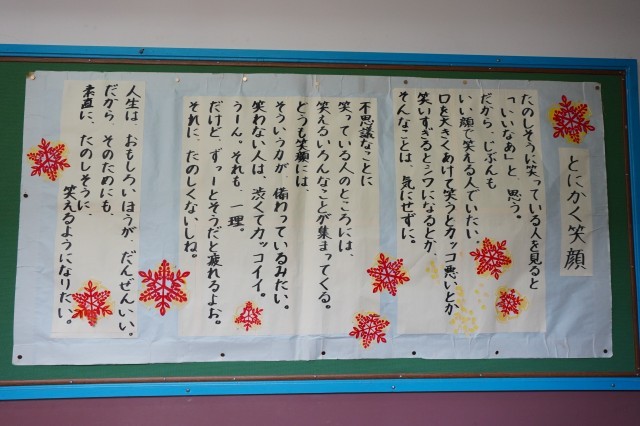 とにかく笑顔
たのしそうに笑っている人を見ると
「いいなあ」と 思う。
だから、じぶんも
いい顔で笑える人でいたい。
口を大きくあけて笑うとカッコ悪いとか
笑いすぎるとシワになるとか、
そんなことは、気にせずに。
不思議なことに
笑っている人のところには、
笑えるいろんなことが集まってくる。
どうも笑顔には、
そういう力が、備わっているみたい。
笑わない人は、渋くてカッコイイ。
うーん。それも、一理。
だけど、ずーっとそうだと疲れるよお。
それに、たのしくないしね。
人生は、おもしろいほうが、だんぜんいい。
だから そのためにも、
素直に、たのしそうに、
笑えるようになりたい。